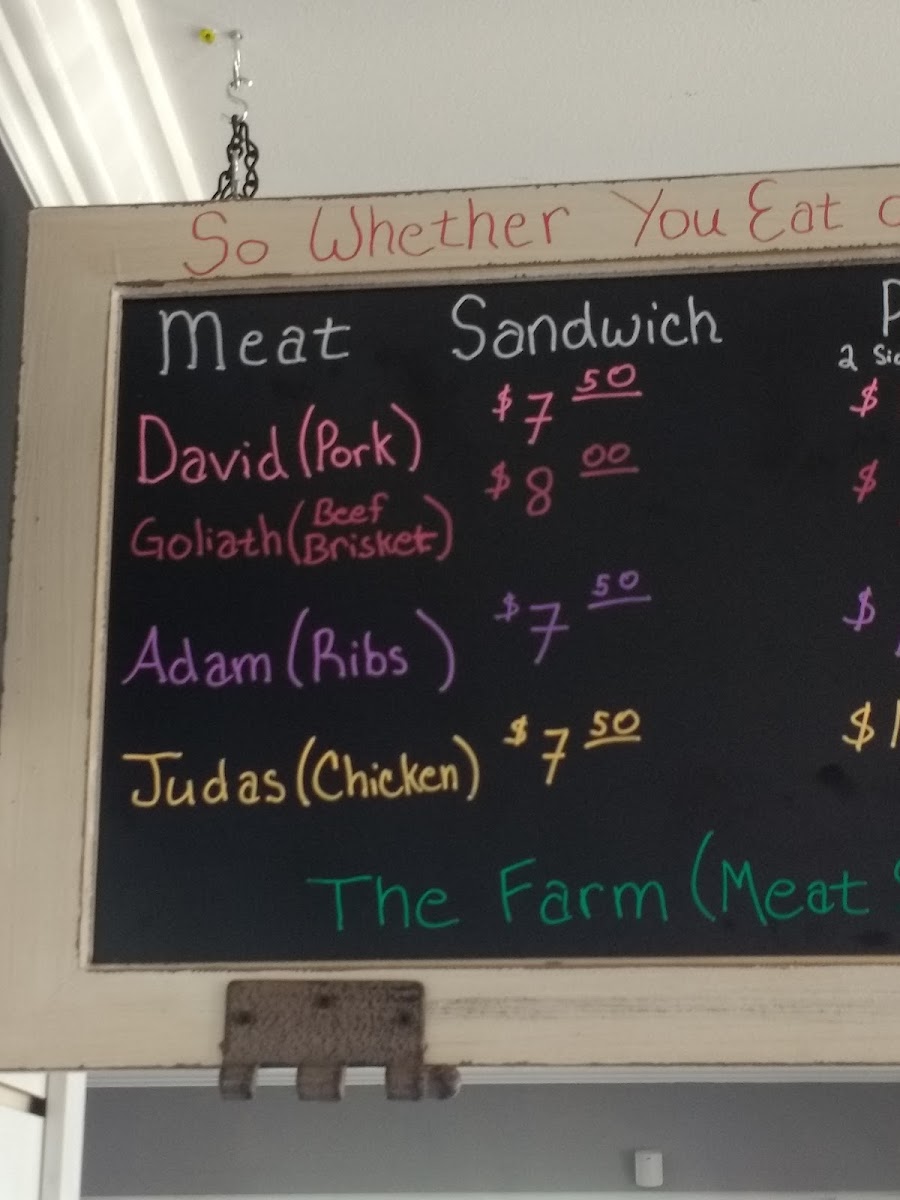 So Whether You Eat
Meat Sandwich
2
David (Pork) $7 50 $
Goliath (Beef Brisket) $8 00 $
Adam (Ribs) $7 50 $
Judas (Chicken) $7 50 $1
The Farm (Meat